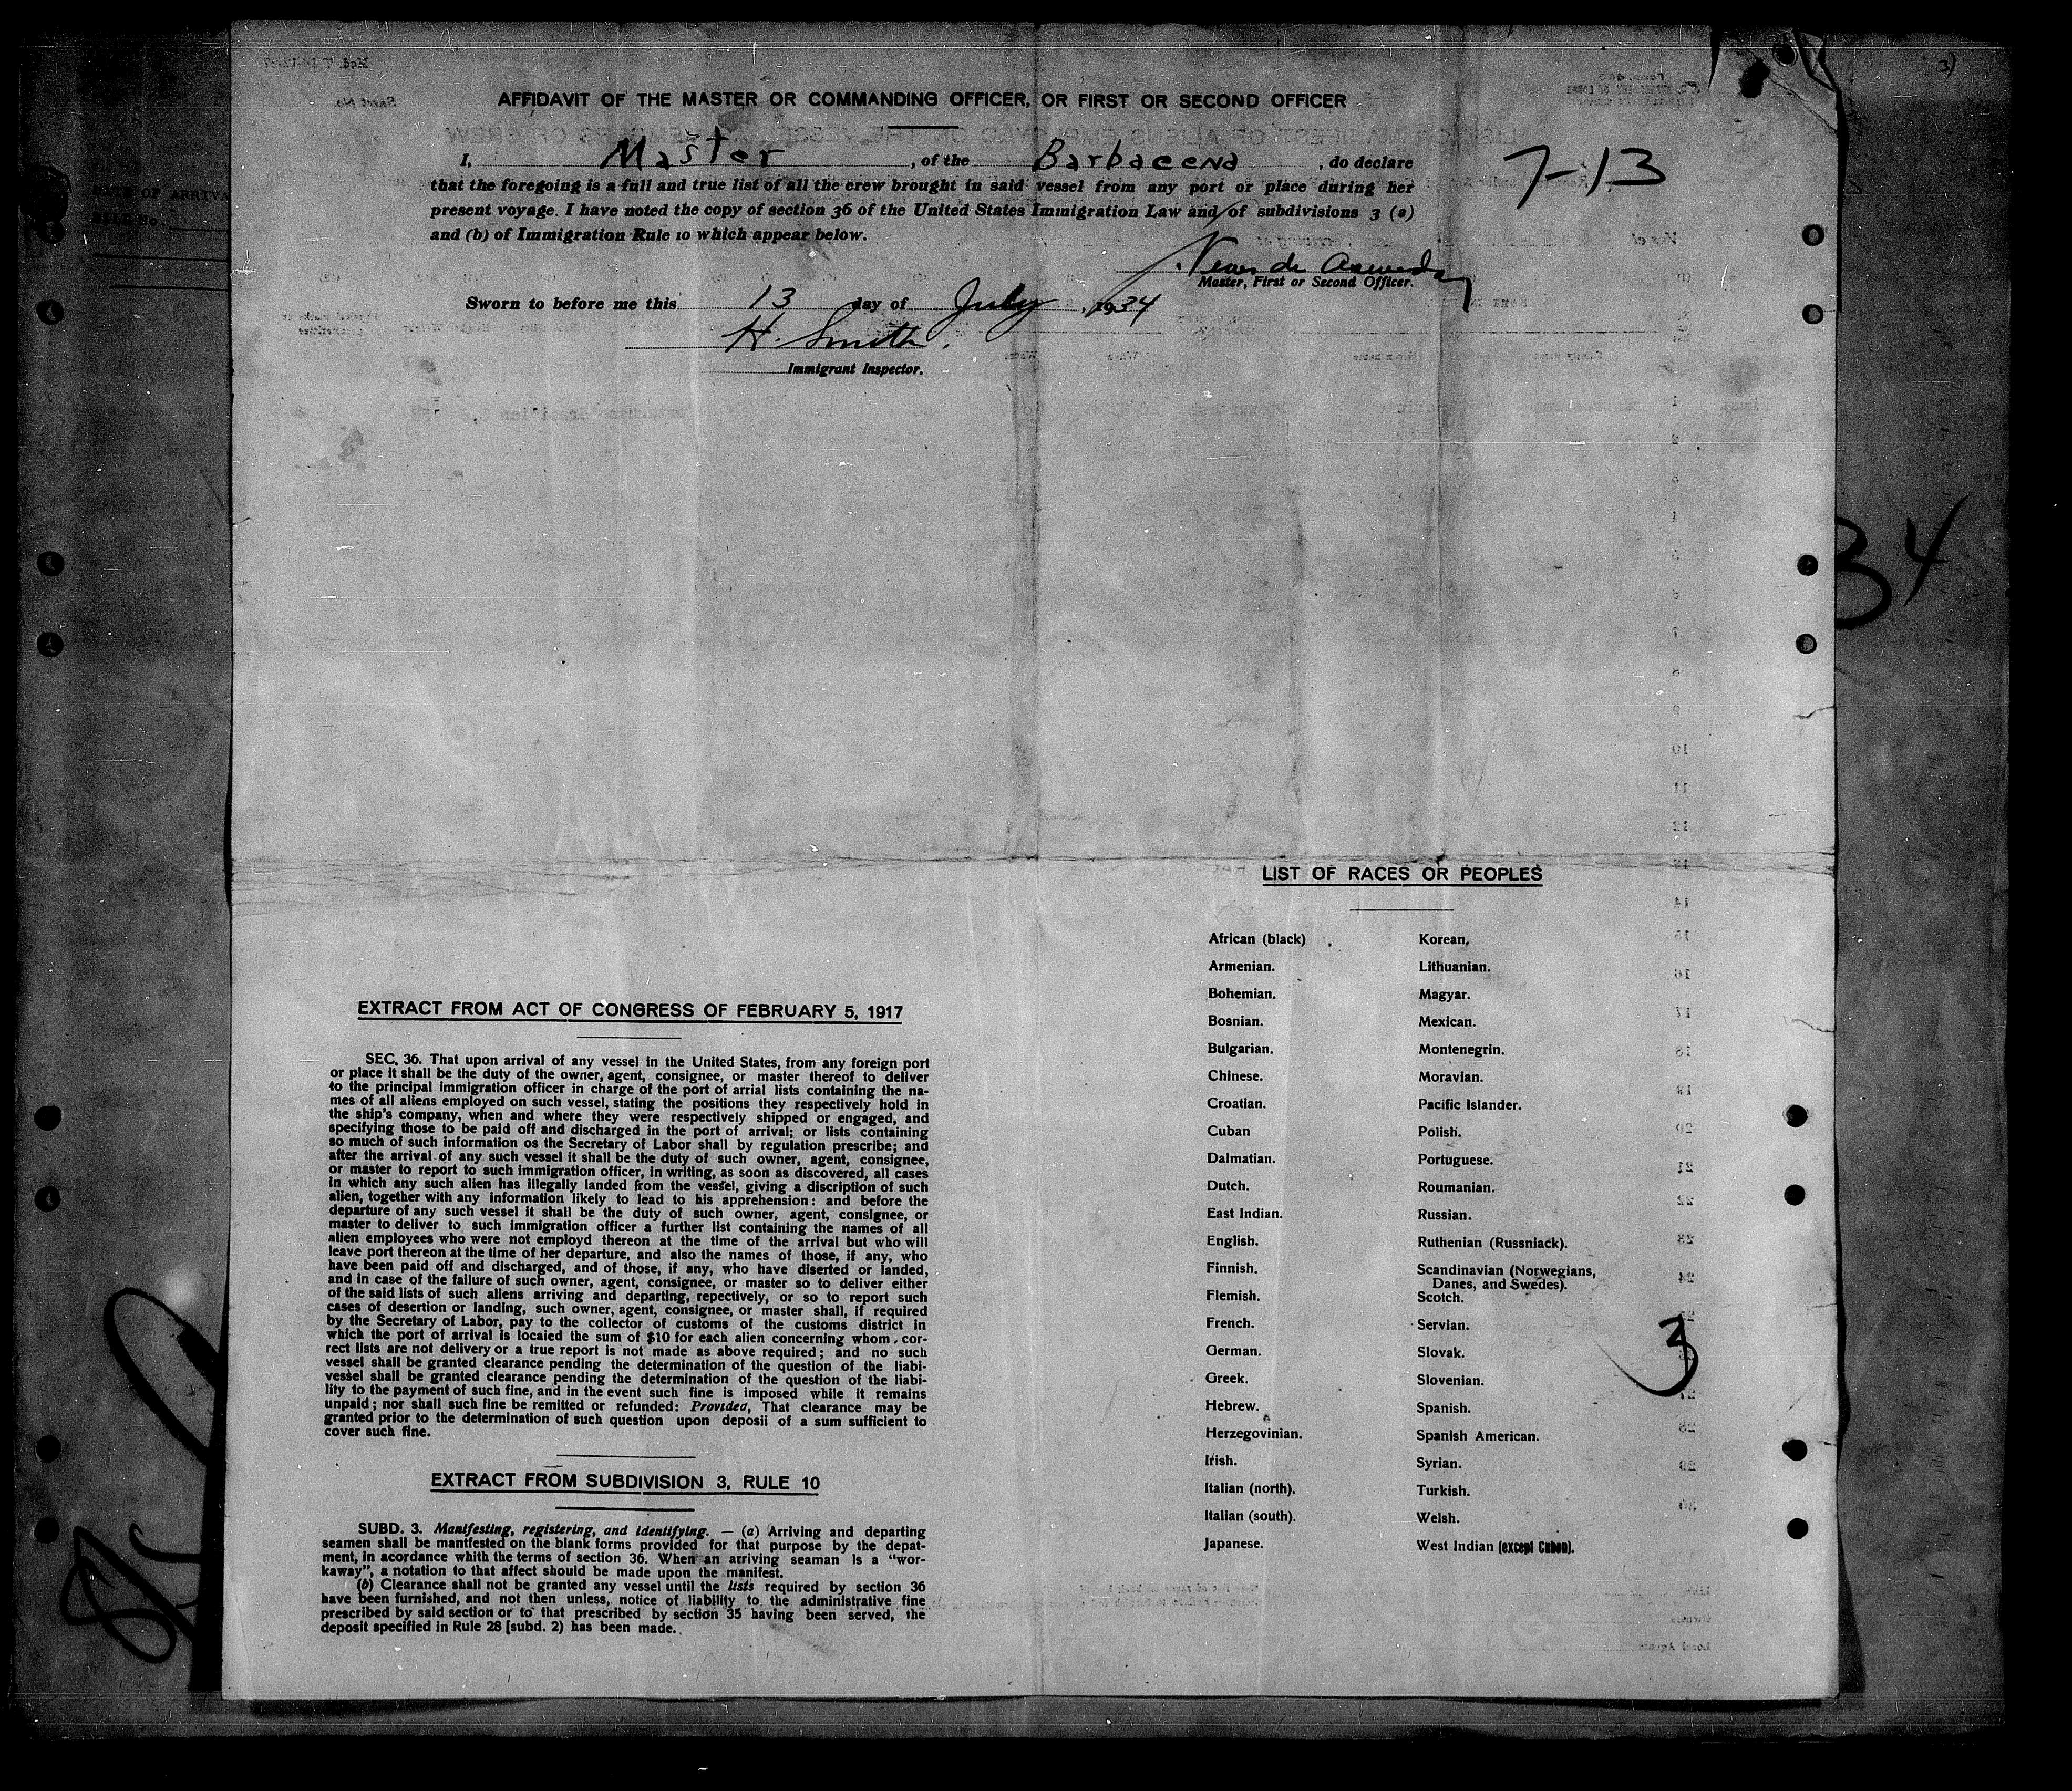 AFFIDAVIT OF THE MASTER OR COMMANDING OFFICER, OR FIRST OR SECOND OFFICER
I, Master, of the Barbacena, do declare
that the foregoing is a full and true list of all the crew brought in said vessel from any port or place during her
present voyage. I have noted the copy of section 36 of the United States Immigration Law and of subdivisions 3 (a)
and (b) of Immigration Rule 10 which appear below.
7-13
Master, First or Second Officer.
Sworn to before me this 13 day of July, 1934
H. Smith.
Immigrant Inspector.
34
DATE OF ARRIVA
LIST OF RACES OR PEOPLES
African (black)
Armenian.
Bohemian.
Bosnian.
Bulgarian.
Chinese.
Croatian.
Cuban
Dalmatian.
Dutch.
East Indian.
English.
Finnish.
Flemish.
French.
German.
Greek.
Hebrew.
Herzegovinian.
Irish.
Italian (north).
Italian (south).
Japanese.
Korean.
Lithuanian.
Magyar.
Mexican.
Montenegrin.
Moravian.
Pacific Islander.
Polish.
Portuguese.
Roumanian.
Russian.
Ruthenian (Russniack).
Scandinavian (Norwegians,
Danes, and Swedes).
Scotch.
Servian.
Slovak.
Slovenian.
Spanish.
Spanish American.
Syrian.
Turkish.
Welsh.
West Indian (except Cuban).
3
EXTRACT FROM ACT OF CONGRESS OF FEBRUARY 5, 1917
SEC. 36. That upon arrival of any vessel in the United States, from any foreign port
or place it shall be the duty of the owner, agent, consignee, or master thereof to deliver
to the principal immigration officer in charge of the port of arrial lists containing the na-
mes of all aliens employed on such vessel, stating the positions they respectively hold in
the ship's company, when and where they were respectively shipped or engaged, and
specifying those to be paid off and discharged in the port of arrival; or lists containing
so much of such information os the Secretary of Labor shall by regulation prescribe; and
after the arrival of any such vessel it shall be the duty of such owner, agent, consignee,
or master to report to such immigration officer, in writing, as soon as discovered, all cases
in which any such alien has illegally landed from the vessel, giving a discription of such
alien, together with any information likely to lead to his apprehension: and before the
departure of any such vessel it shall be the duty of such owner, agent, consignee, or
master to deliver to such immigration officer a further list containing the names of all
alien employees who were not employd thereon at the time of the arrival but who will
leave port thereon at the time of her departure, and also the names of those, if any, who
have been paid off and discharged, and of those, if any, who have diserted or landed,
and in case of the failure of such owner, agent, consignee, or master so to deliver either
of the said lists of such aliens arriving and departing, repectively, or so to report such
cases of desertion or landing, such owner, agent, consignee, or master shall, if required
by the Secretary of Labor, pay to the collector of customs of the customs district in
which the port of arrival is locaied the sum of $10 for each alien concerning whom cor-
rect lists are not delivery or a true report is not made as above required; and no such
vessel shall be granted clearance pending the determination of the question of the liabi-
vessel shall be granted clearance pending the determination of the question of the liabi-
lity to the payment of such fine, and in the event such fine is imposed while it remains
unpaid; nor shall such fine be remitted or refunded: Provided, That clearance may be
granted prior to the determination of such question upon deposii of a sum sufficient to
cover such fine.
EXTRACT FROM SUBDIVISION 3, RULE 10
SUBD. 3. Manifesting, registering, and identifying. — (a) Arriving and departing
seamen shall be mantfested on the blank forms provided for that purpose by the depat-
ment, in acordance whith the terms of section 36. When an arriving seaman is a "wor-
kaway", a notation to that affect should be made upon the manifest.
(b) Clearance shall not be granted any vessel until the lists required by section 36
have been furnished, and not then unless, notice of liability to the administrative fine
prescribed by said section or to that prescribed by section 35 having been served, the
deposit specified in Rule 28 [subd. 2) has been made.